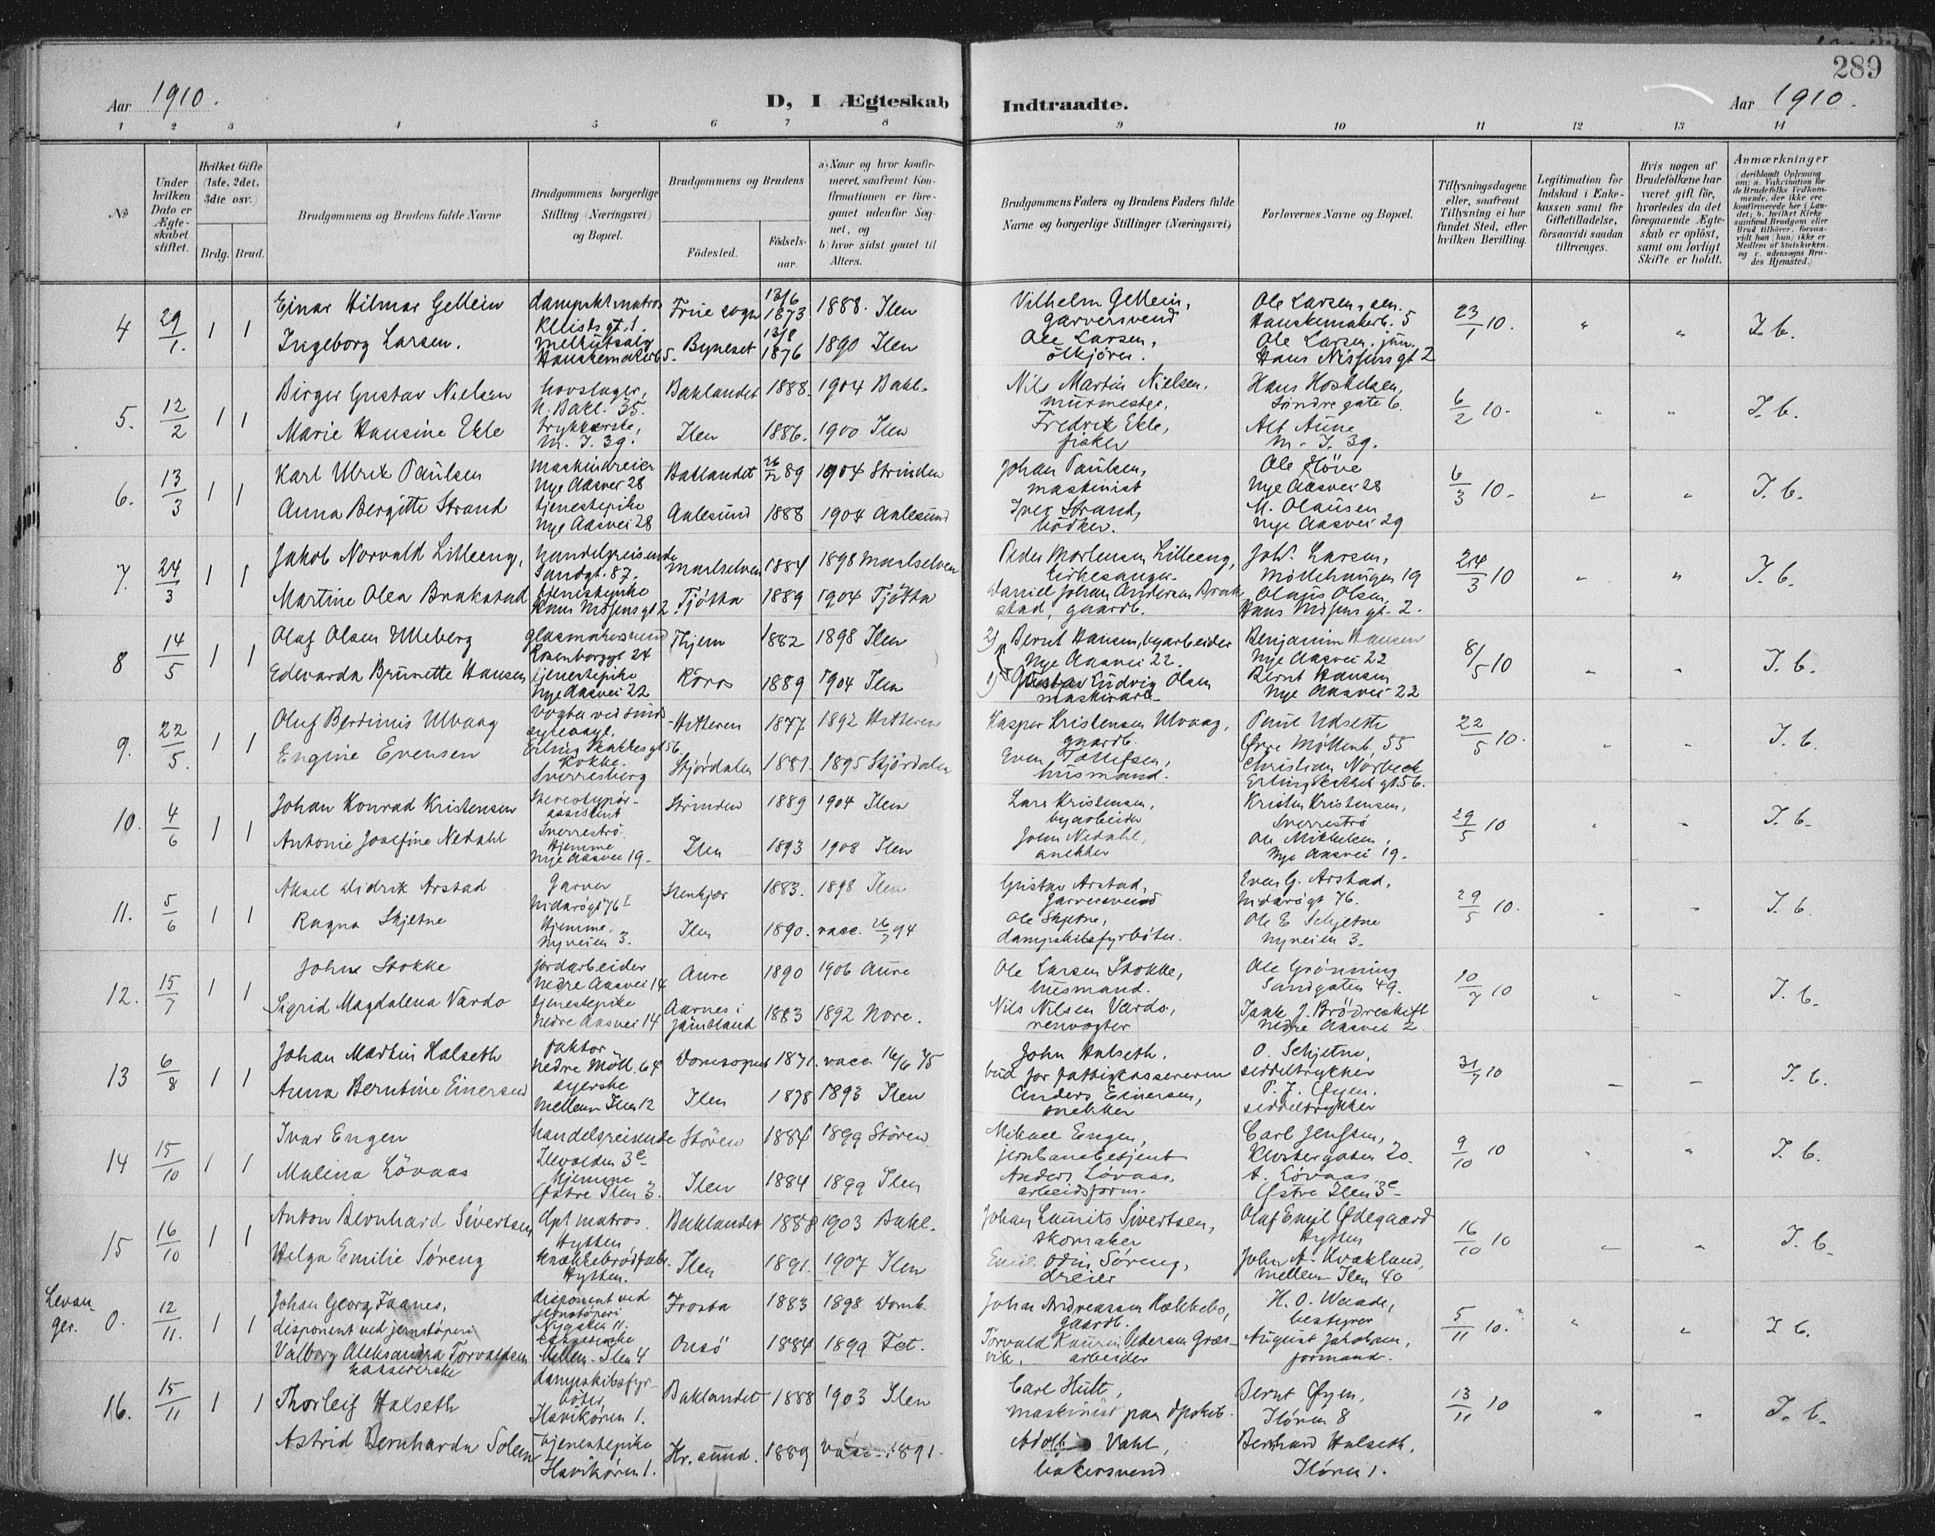 289
Aar 1910.
D, I Ægteskab Indtraadte.
Aar 1910.
1 2 3 4 5 6 7 8 9 10 11 12 13 14
No
Under hvilken Dato er Ægteskabet stiftet.
Hvilket Gifte (1ste, 2det, 3die osv.)
Brdg. Brud.
Brudgommens og Brudens fulde Navne
Brudgommens borgerlige Stilling (Næringsvei) og Bopæl.
Brudgommens og Brudens
Födested.
Födselsaar.
a) Naar og hvor konfirmeret, saafremt Konfirmationen er foregaaet udenfor Sognet, og
b) hvor sidst gaaet til Alters.
Brudgommens Faders og Brudens Faders fulde Navne og borgerlige Stillinger (Næringsvei)
Forlovernes Navne og Bopæl.
Tillysningsdagene eller, saafremt Tillysning ei har fundet Sted, efter hvilken Bevilling.
Legitimation for Indskud i Enkekassen samt for Giftetilladelse, forsaavidt saadan tiltrænges.
Hvis nogen af Brudefolkene har været gift för, hvorledes da det foregaaende Ægteskab er oplöst, samt om lovligt Skifte er holdt.
Anmærkninger
4 29/1. 1 1 Einar Hilmar Gellein dampsk. matros Kleists gt. 1. Frue sogn 13/6 1873 1888. Ilen Vilhelm Gellein, garversvend Ole Larsen, sen. Hanskemakerb. 5 23/1 10. " " I. b.
Ingeborg Larsen. melkutsalg Hanskemakerb. 5. Byneset 13/8 1876 1890 Ilen Ole Larsen, ölkjörer. Ole Larsen, jun. Hans Nissens gt 2
5. 12/2 1 1 Birger Gustav Nielsen hovslager, N. Bakl. 35. Baklandet 1888. 1904 Bakl. Nils Martin Nielsen, murmester, Hans Hoskelsen, Søndre gate 6. 6/2 10. " " I. b.
Marie Hansine Ekle trykkerske, M. I. 39. Ilen 1886. 1900 Ilen Fredrik Ekle, fisker Alb. Aune M. I. 39.
6. 13/3 1 1 Karl Ulrik Paulsen maskindreier Nye Aasvei 28 Baklandet 89 1904 Strinden Johan Paulsen, maskinist Ole Høve Nye Aasvei 28 6/3 10. " " I. b.
Anna Bergitte Strand tjenestepike Nye Aasvei 28 Aalesund 1888 1904 Aalesund Iver Strand, bödker. M. Olausen nye Aasvei 29
7. 24/3 1 1 Jakob Norvald Lilleeng, handelsreisende Sandgt. 87. Maalselven 1884 1898 Maalselven Peder Mortensen Lilleeng, kirkesanger. Joh. Larsen, Möllehaugen 19 3 10 " " I. b.
Martine Olea Brakstad tjenestepike Hans Nissens gt 2 Tjøtta 1889 1904 Tjøtta Daniel Johan Andersen Brakstad, gaardb. Olajs Olsen, Hans Nissens gt. 2.
8 14/5 1 1 Olaf Olsen Ulleberg glasmakersvend Rosenborggt 24 Thjem 1882 1898 Ilen 2) Bernt Hansen, byarbeider Nye Aasvei 22. Benjamin Hansen Nye Aasvei 22 8/5 10 " " I. b.
Edevarda Brunette Hansen tjenestepike Nye Aasvei 22 Röros 1889 1904 Ilen 1) Ludvig Olsen maskinarb. Bernt Hansen Nye Aasvei 22
9. 22/5. 1 1 Oluf Berdinus Ulvaag Hitteren 1877 1892 Hitteren Kaspar Kristensen Ulvaag, gaardb. Paul Udseth Øvre Möllenb. 55 22/5 10. " " I. b.
Engine Evensen Kokke. Sverresborg Stjördalen 1881 1895 Stjördalen Even Tollefsen, husmand. Christian Norbeck Erling Skakkes gt 56.
10. 4/6 1 1 Johan Konrad Kristensen Stereotypörassistent Sverrestrø Strinden 1889 1904 Ilen Lars Kristensen, byarbeider Kristen Kristensen, Sverrestrø 29/5 10 " " I. b.
Antonie Josefine Nedahl Hjemme Nye Aasvei 19. Ilen 1893 1908 Ilen John Nedahl, snekker Ole Mikkelsen, Nye Aasvei 19.
11. 5/6 1 1 Aksel Didrik Arstad Garver Nidarøgt 76 I Stenkjær 1883. 1898 Ilen Gustav Arstad, Garversvend Even G. Arstad, Nidarøgt 76. 29/5 10. " " I. b.
Ragna Skjetne Hjemme. Nyveien 3. Ilen 1890. vacc. 26/7 94 Ole Skjetne, dampskibsfyrböter. Ole E Schjetne Nyveien 3.
12. 15/7 1 1 Johne Stokke jordarbeider Nedre Aasvei 14 Aure 1890 1906 Aure Ole Larsen Stokke, husmand. Ole Grønning Sandgaten 49. 10/7 10 " " I. b.
Sigrid Magdalena Vardo tjenestepike Nedre Aasvei 14 Aarnes i Jämtland 1883 1892 Nore. Nils Nilsen Vardo, renvogter J. Brödreskift Nedre Aasvei 2
13 6/8 1 1 Johan Martin Halseth faktor Nedre Möll. 64 Domsognet 1871. vacc. 16/6 75 John Halseth, bud for fattigkassereren O. Schjetne, siddeltrykker 31/7 10 " " I. b.
Anna Berntine Einersen syerske Mellem Ilen 12 Ilen 1878 1893 Ilen Anders Einersen, snekker P. J. Øyen. siddeltrykker
14 15/10 1 1 Ivar Engen Handelsreisende Ilevolden 3c Stören 1884 1899 Stören Mikael Engen, jernbanebetjent Carl Jenssen, Klostergaten 20. 9/10 10 " " I. b.
Malina Lövaas Hjemme Østre Ilen 3. Ilen 1884 1899 Ilen Anders Lövaas, arbeidsform. A. Løvaas Østre Ilen 3c
15 16/10 1 1 Anton Bernhard Sivertsen dpt matros. Hytten Baklandet 1888 1903 Bakl. Johan Laurits Sivertsen, skomaker Olaf Emil Ødegaard Hytten 16/10 10 " " I. b.
Helga Emilie Søreng Knækkebrödfabr. Hytten. Ilen 1891. 1907 Ilen Emil Odin Søreng, dreier John A. Kvakland, mellem Ilen 40
Levanger. 0. 12/11. 1 1 Johan Georg Faanes, disponent ved jernstøperi disponent ved jernstøperi Frosta 1883 1898 Domk. Johan Andreassen gaardb. H. O. Waade, bestyrer 5/11 10. " " I. b.
Valborg Aleksandra Torvaldsen kassererske Mellem Ilen 4 Onsö 1884 1899 Fet. Torvald Pedersen Græsvik, arbeider August Jakobsen, formand.
16. 15/11 1 1 Thorleif Halseth dampskibsfyrböter Ilsvikören 1. Baklandet 1888 1903 Ilen Carl Hult, maskinist paa dpskib. Bernt Øyen, Ilören 8 13/11 10 " " I. b.
Astrid Bernharda Solem tjenestepike Ilsvikören 1. Kr. sund. 1889 vacc. 1891. Adolf Vahl, bakersvend Bernhard Halseth, Ilören 1.